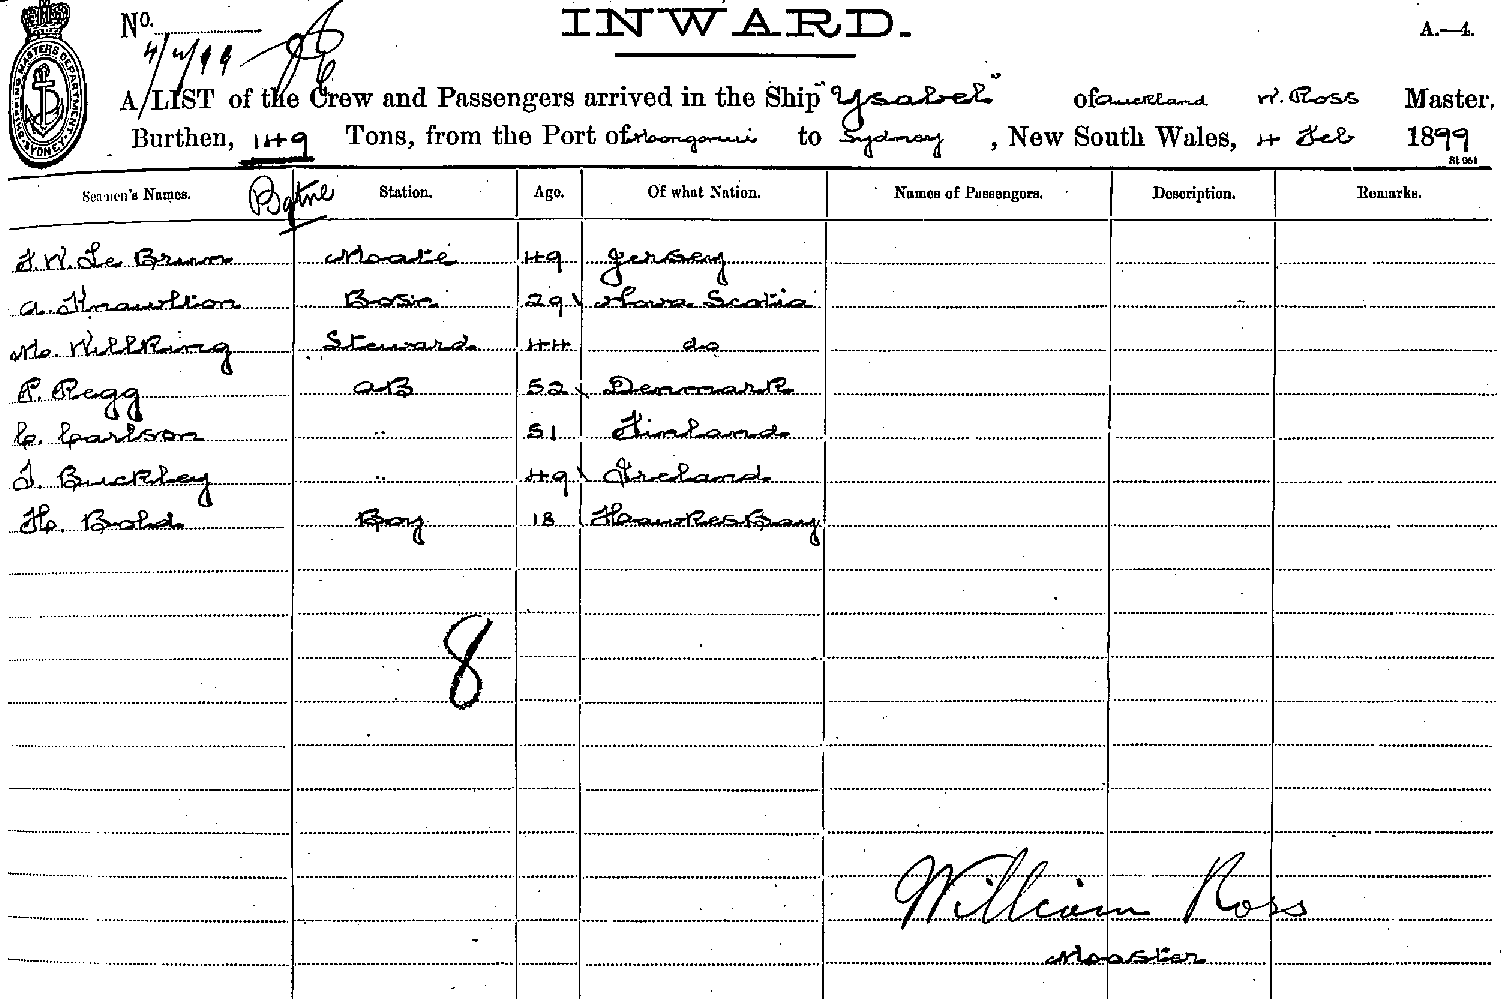 INWARD.
No.
A.—4.
4/2/99
A LIST of the Crew and Passengers arrived in the Ship "Ysabel" of Auckland W. Ross Master,
Burthen, 149 Tons, from the Port of Mongonui to Sydney, New South Wales, 4 Feb 1899
Seamen's Names. Bqtne Station. Age. Of what Nation. Names of Passengers. Description. Remarks.
F. W. Le Brun Mate 49 Jersey
A. Knowlton Bosn 29 Nova Scotia
M. Willking Steward 44 do
P. Regg AB 52 Denmark
C. Carlson " 51 Finland
J. Buckley " 49 Ireland
H. Bold Boy 18 Hawkes Bay
8
William Ross
Master